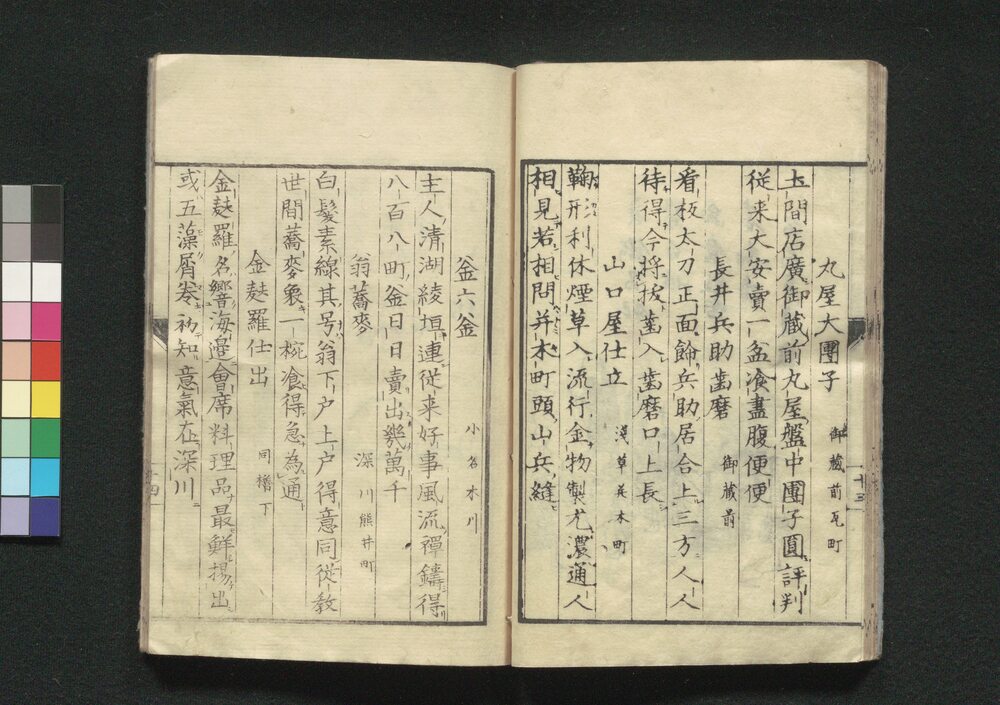 丸屋大團子 御蔵前瓦町
土間店廣御蔵前丸屋盤中團子圓評判
従来大安賣一盆飡盡腹便便
長井兵助歯磨 御蔵前
看板太刀正面餝兵助居合上三方人人
待得今将抜歯入歯磨口上長
山口屋仕立 浅草並木町
鞠形利休煙草入流行金物製尤濃通人
相見若相問并木町頭山兵縫
十三
釜六釜 小名木川
主人清湖綾垣連従来好事風流禪鑄得
八百八町釜日日賣出幾萬千
翁蕎麥 深川熊井町
白髪素線其号翁下戸上戸得意同従教
世間蕎麥象一椀飡得急為通
金麩羅仕出 同櫓下
金麩羅名響海邉會席料理品最鮮揚出
或五藻屑巻初知意氣在深川
十四